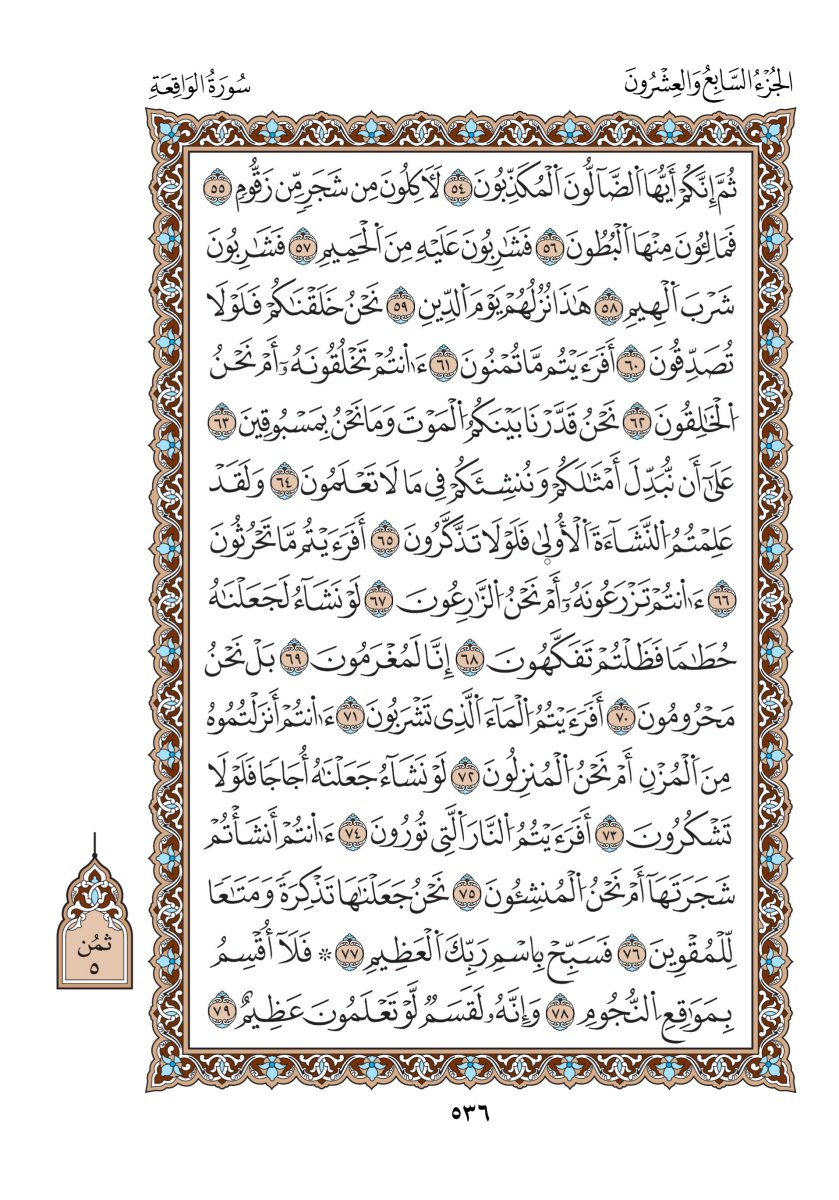 الجُزْءُ السَّابِعُ وَالعِشْرُونَ
سُورَةُ الوَاقِعَةِ
ثُمَّ إِنَّكُمُۥ أَيُّهَا اَ۬لضَّآلُّونَ اَ۬لْمُكَذِّبُونَ ٥٤ لَأٓكِلُونَ مِن شَجَرٖ مِّن زَقُّومٖ ٥٥
فَمَالِـُٔونَ مِنْهَا اَ۬لْبُطُونَ ٥٦ فَشَٰرِبُونَ عَلَيْهِ مِنَ اَ۬لْحَمِيمِ ٥٧ فَشَٰرِبُونَ
شَرْبَ اَ۬لْهِيمِ ٥٨ هَٰذَا نُزُلُهُمْ يَوْمَ اَ۬لدِّينِ ٥٩ نَحْنُ خَلَقْنَٰكُمْ فَلَوْلَا
تُصَدِّقُونَ ٦٠ أَفَرَءَيْتُم مَّا تُمْنُونَ ٦١ ءَا۬نتُمْ تَخْلُقُونَهُۥٓ أَمْ نَحْنُ
اُ۬لْخَٰلِقُونَ ٦٢ نَحْنُ قَدَّرْنَا بَيْنَكُمُ اُ۬لْمَوْتَ وَمَا نَحْنُ بِمَسْبُوقِينَ ٦٣
عَلَىٰٓ أَن نُّبَدِّلَ أَمْثَٰلَكُمْ وَنُنشِئَكُمْ فِي مَا لَا تَعْلَمُونَ ٦٤ وَلَقَدْ
عَلِمْتُمُ اُ۬لنَّشْأَةَ اَ۬لْأُولَىٰ فَلَوْلَا تَذَّكَّرُونَ ٦٥ أَفَرَءَيْتُم مَّا تَحْرُثُونَ
٦٦ ءَا۬نتُمْ تَزْرَعُونَهُۥٓ أَمْ نَحْنُ اُ۬لزَّٰرِعُونَ ٦٧ لَوْ نَشَآءُ لَجَعَلْنَٰهُ
حُطَٰمٗا فَظَلْتُمْ تَفَكَّهُونَ ٦٨ إِنَّا لَمُغْرَمُونَ ٦٩ بَلْ نَحْنُ
مَحْرُومُونَ ٧٠ أَفَرَءَيْتُمُ اُ۬لْمَآءَ اَ۬لَّذِي تَشْرَبُونَ ٧١ ءَا۬نتُمْ أَنزَلْتُمُوهُ
مِنَ اَ۬لْمُزْنِ أَمْ نَحْنُ اُ۬لْمُنزِلُونَ ٧٢ لَوْ نَشَآءُ جَعَلْنَٰهُ أُجَاجٗا فَلَوْلَا
تَشْكُرُونَ ٧٣ أَفَرَءَيْتُمُ اُ۬لنَّارَ اَ۬لَّتِي تُورُونَ ٧٤ ءَا۬نتُمْ أَنشَأْتُمْ
شَجَرَتَهَآ أَمْ نَحْنُ اُ۬لْمُنشِـُٔونَ ٧٥ نَحْنُ جَعَلْنَٰهَا تَذْكِرَةٗ وَمَتَٰعٗا
لِّلْمُقْوِينَ ٧٦ فَسَبِّحْ بِاسْمِ رَبِّكَ اَ۬لْعَظِيمِ ٧٧ * فَلَآ أُقْسِمُ
بِمَوَٰقِعِ اِ۬لنُّجُومِ ٧٨ وَإِنَّهُۥ لَقَسَمٞ لَّوْ تَعْلَمُونَ عَظِيمٌ ٧٩
ثُمُن
٥
٥٣٦